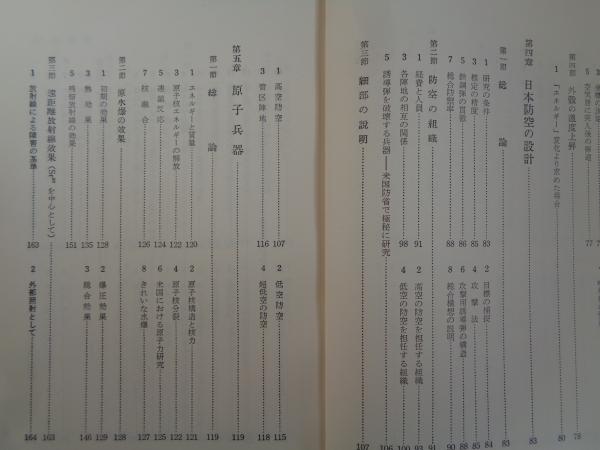 5 空気層に突入後の弾道……77
第四節 外殻の温度上昇……78
1 「エネルギー」変化より求めた場合……80
第四章 日本防空の設計……83
第一節 総論……83
1 研究の条件……83 2 目標の捕捉……84
3 推定の精度……85 4 攻撃法
5 86 6 攻撃用誘導弾の構造……88
7 総合防禦率……88 8 総合構想の説明……90
第二節 防空の組織……91
1 経費と人員……91 2 高空の防空を担任する組織……93
3 各陣地の相互の関係……98 4 低空の防空を担任する組織……100
5 誘導弾を破壊する兵器――米国防省で極秘に研究……106
第三節 細部の説明……107
1 高空防空……107 2 低空防空……115
3 管区陣地……116 4 超低空の防空……118
第五章 原子兵器……119
第一節 総論……119
1 エネルギーと質量……120 2 原子核構造と核力……121
3 原子核エネルギーの解放……122 4 原子核分裂……122
5 連鎖反応……124 6 米国における原子力研究……125
7 核融合……126 8 きれいな水爆……127
第二節 原水爆の効果……128
1 初期の効果……128 2 爆圧効果……129
3 熱効果……135 総合効果……146
5 残留放射線の効果……151
第三節 遠距離放射線効果(Sr90を中心として)……163
1 放射線による障害の基準……163 2 外部照射として……164